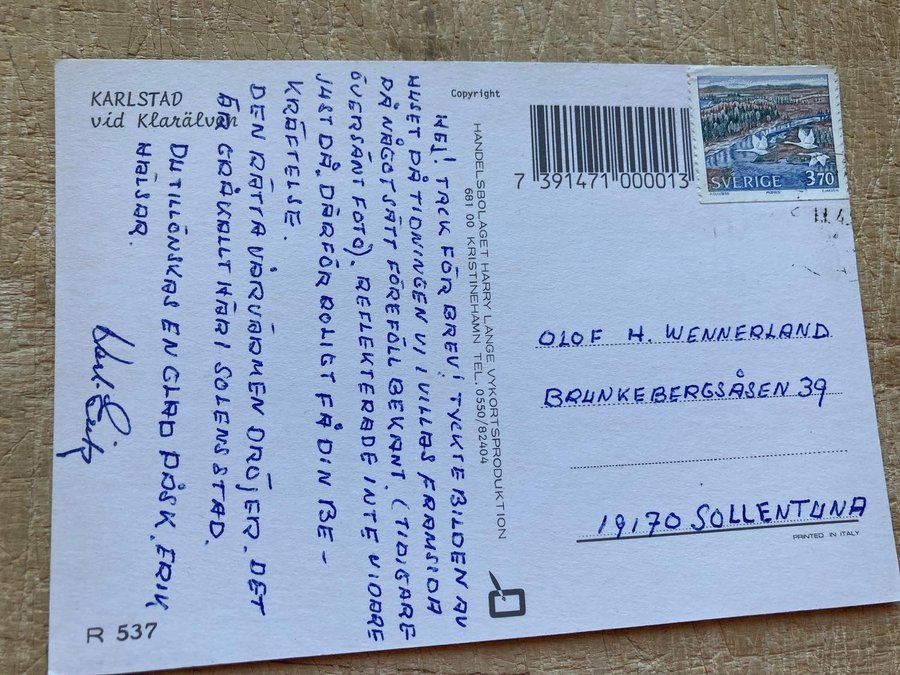 KARLSTAD
vid Klarälven
Copyright
HEJ! TACK FÖR BREV! TYCKTE BILDEN AV
HUSET PÅ TIDNINGEN VI VILLAS FRAMSIDA
PÅ NÅGOT SÄTT FÖREFÖLL BEKANT. (TIDIGARE
ÖVERSÄNT FOTO). REFLEKTERADE INTE VIDARE
JUST DÅ. DÄRFÖR ROLIGT FÅ DIN BE-
KRÄFTELSE.
DEN RÄTTA VÅRVÄRMEN DRÖJER. DET
ÄR GRÅKALLT HÄR I SOLENS STAD.
DU TILLÖNSKAS EN GLAD PÅSK. ERIK
HÄLSAR.
R 537
HANDELSBOLAGET HARRY LANGE VYKORTSPRODUKTION
681 00 KRISTINEHAMN TEL. 0550/82404
7 391471 000013
SVERIGE 370
OLOF H. WENNERLAND
BRUNKEBERGSÅSEN 39
19170 SOLLENTUNA
PRINTED IN ITALY